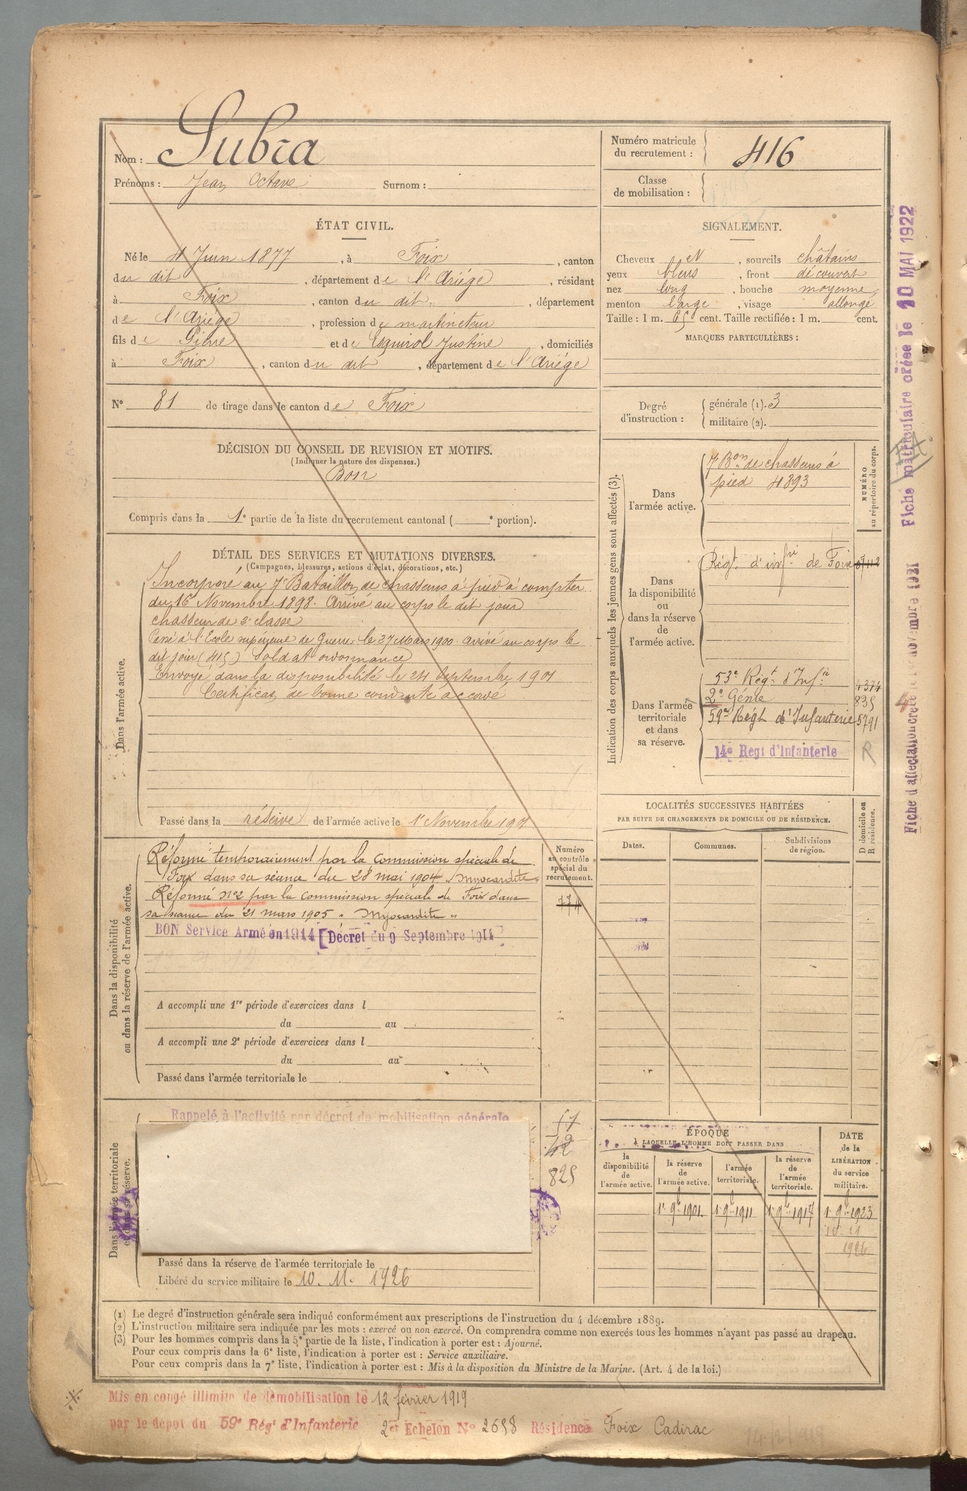 Nom : Subra
Prénoms : Jean Octave Surnom :
Numéro matricule du recrutement : 416
Classe de mobilisation :
ÉTAT CIVIL.
Né le 4 Juin 1877, à Foix, canton
du dit, département de l'Ariège, résidant
à Foix, canton du dit, département
de l'Ariège, profession de
fils de et de Esquirol Justine, domiciliés
à Foix, canton du dit, département de l'Ariège
N° 81 de tirage dans le canton de Foix
SIGNALEMENT.
Cheveux et, sourcils châtains
yeux bleus, front découvert
nez long, bouche moyenne
menton large, visage allongé
Taille : 1 m. 65 cent. Taille rectifiée : 1 m. cent.
MARQUES PARTICULIÈRES :
Degré d'instruction : générale (1). 3
militaire (2).
DÉCISION DU CONSEIL DE REVISION ET MOTIFS.
(Indiquer la nature des dispenses.)
Bon
Compris dans la 1e partie de la liste du recrutement cantonal ( e portion).
DÉTAIL DES SERVICES ET MUTATIONS DIVERSES.
(Campagnes, blessures, actions d'éclat, décorations, etc.)
Dans l'armée active.
Incorporé au 7e Bataillon de chasseurs à pied à compter
du 16 Novembre 1898. Arrivé au corps le dit jour
chasseur de 2e classe
Passé à l'Ecole supérieure de Guerre le 27 Mars 1900 arrivé au corps le
dit jour (415) soldat ordonnance
Envoyé dans la disponibilité le 24 Septembre 1901
Certificat de bonne conduite accordé
Passé dans la réserve de l'armée active le 1er Novembre 1901
Indication des corps auxquels les jeunes gens sont affectés (3).
NUMÉRO au répertoire du corps.
Dans l'armée active.
7e Bon de chasseurs à
pied 4893
Dans la disponibilité ou dans la réserve de l'armée active.
Régt d'infrie de Foix
Dans l'armée territoriale et dans sa réserve.
53e Regt d'Infie 4374
2e Génie 835
59e Régt d'Infanterie 5791
14e Regt d'Infanterie R
LOCALITÉS SUCCESSIVES HABITÉES
PAR SUITE DE CHANGEMENTS DE DOMICILE OU DE RÉSIDENCE.
Dates. Communes. Subdivisions de région. D domicile ou R résidence.
Dans la disponibilité ou dans la réserve de l'armée active.
Numéro au contrôle spécial du recrutement.
Réformé temporairement par la commission spéciale de
Foix dans sa séance du 28 mai 1904 "Myocardite"
Réformé n°2 par la commission spéciale de Foix dans
sa séance du 21 mars 1905 "Myocardite"
BON Service Armé en 1914 [Décret du 9 Septembre 1914]
A accompli une 1re période d'exercices dans l
du au
A accompli une 2e période d'exercices dans l
du au
Passé dans l'armée territoriale le
Dans l'armée territoriale et dans sa réserve.
Rappelé à l'activité par décret de mobilisation générale
57
42
825
Passé dans la réserve de l'armée territoriale le
Libéré du service militaire le 10. 11. 1926
ÉPOQUE
À LAQUELLE L'HOMME DOIT PASSER DANS
la disponibilité de l'armée active. la réserve de l'armée active. l'armée territoriale. la réserve de l'armée territoriale. DATE de la LIBÉRATION du service militaire.
1er 9bre 1901 1er 9bre 1911 1er 9bre 1917 1er 9bre 1923
1926
(1) Le degré d'instruction générale sera indiqué conformément aux prescriptions de l'instruction du 4 décembre 1889.
(2) L'instruction militaire sera indiquée par les mots : exercé ou non exercé. On comprendra comme non exercés tous les hommes n'ayant pas passé au drapeau.
(3) Pour les hommes compris dans la 5e partie de la liste, l'indication à porter est : Ajourné.
Pour ceux compris dans la 6e liste, l'indication à porter est : Service auxiliaire.
Pour ceux compris dans la 7e liste, l'indication à porter est : Mis à la disposition du Ministre de la Marine. (Art. 4 de la loi.)
Mis en congé illimité de démobilisation le 12 février 1919
par le depot du 59e Rég' d'Infanterie 2e Echelon N° 2698 Résidence Foix Cadirac
Fiche matriculaire créée le 10 MAI 1922
Fiche d'affectation créée le novembre 1921